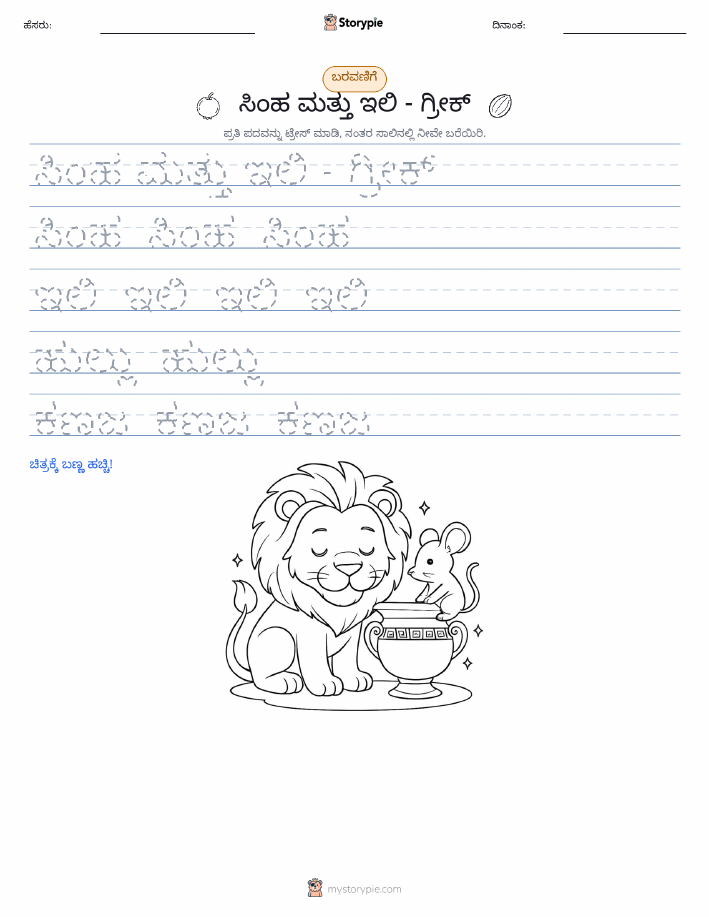 ಹೆಸರು:
Storypie
ದಿನಾಂಕ:
ಬರವಣಿಗೆ
ಸಿಂಹ ಮತ್ತು ಇಲಿ - ಗ್ರೀಕ್
ಪ್ರತಿ ಪದವನ್ನು ಟ್ರೇಸ್ ಮಾಡಿ, ನಂತರ ಸಾಲಿನಲ್ಲಿ ನೀವೇ ಬರೆಯಿರಿ.
ಸಿಂಹ ಮತ್ತು ಇಲಿ - ಗ್ರೀಕ್
ಸಿಂಹ ಸಿಂಹ ಸಿಂಹ
ಇಲಿ ಇಲಿ ಇಲಿ ಇಲಿ
ಹುಲ್ಲು ಹುಲ್ಲು
ಕಣಜ ಕಣಜ ಕಣಜ
ಚಿತ್ರಕ್ಕೆ ಬಣ್ಣ ಹಚ್ಚಿ!
mystorypie.com